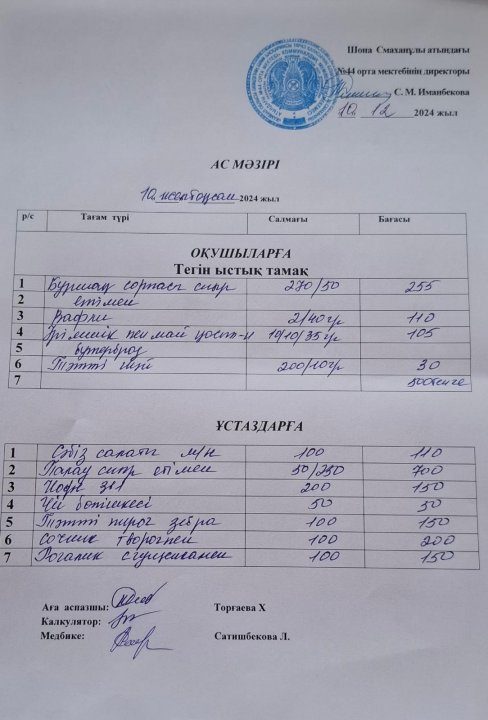 Шона Смаханұлы атындағы
№44 орта мектебінің директоры
С. М. Иманбекова
10. 12 2024 жыл
АС МӘЗІРІ
10 желтоқсан 2024 жыл
р/с Тағам түрі Салмағы Бағасы
ОҚУШЫЛАРҒА
Тегін ыстық тамақ
1 Бұршақ сорпасы сиыр 270/50 255
2 етімен
3 Вафли 2/40гр 110
4 Ірімшік пен май қост-н 10/10/35гр 105
5 бутерброд
6 Тәтті шәй 200/10гр 30
7 500теңге
ҰСТАЗДАРҒА
1 Сәбіз салаты м/н 100 110
2 Палау сиыр етімен 50/250 700
3 200 150
4 Чай бөлішкесі 50 50
5 Тәтті пирог зебра 100 150
6 Сочник творогпен 100 200
7 Рогалик сгущенкамен 100 150
Аға аспазшы: Торғаева Х
Калкулятор:
Медбике: Сатишбекова Л.